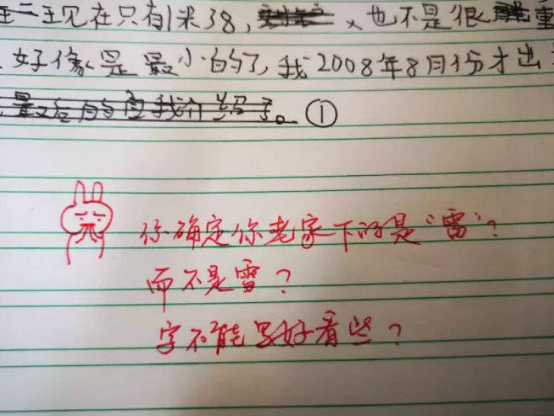 现在只有1米38,人也不是很重
好像是最小的了,我2008年8月份才出
自我介绍了。①
你确定你老家下的是“雷”?
而不是雪?
字不能写好看些?